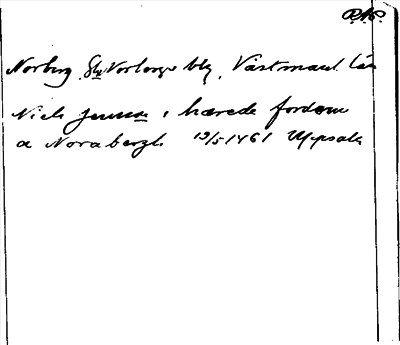 RAP.
Norberg, Norbergs blg, Västmanl. län
Niels Jensson i hærede fordom
a Norabergh 19/5 1461 Uppsala